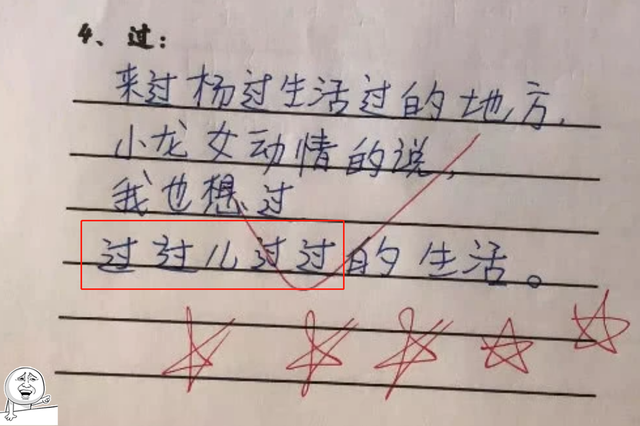 4、过：
来过杨过生活过的地方，
小龙女动情的说，
我也想过
过过儿过过的生活。